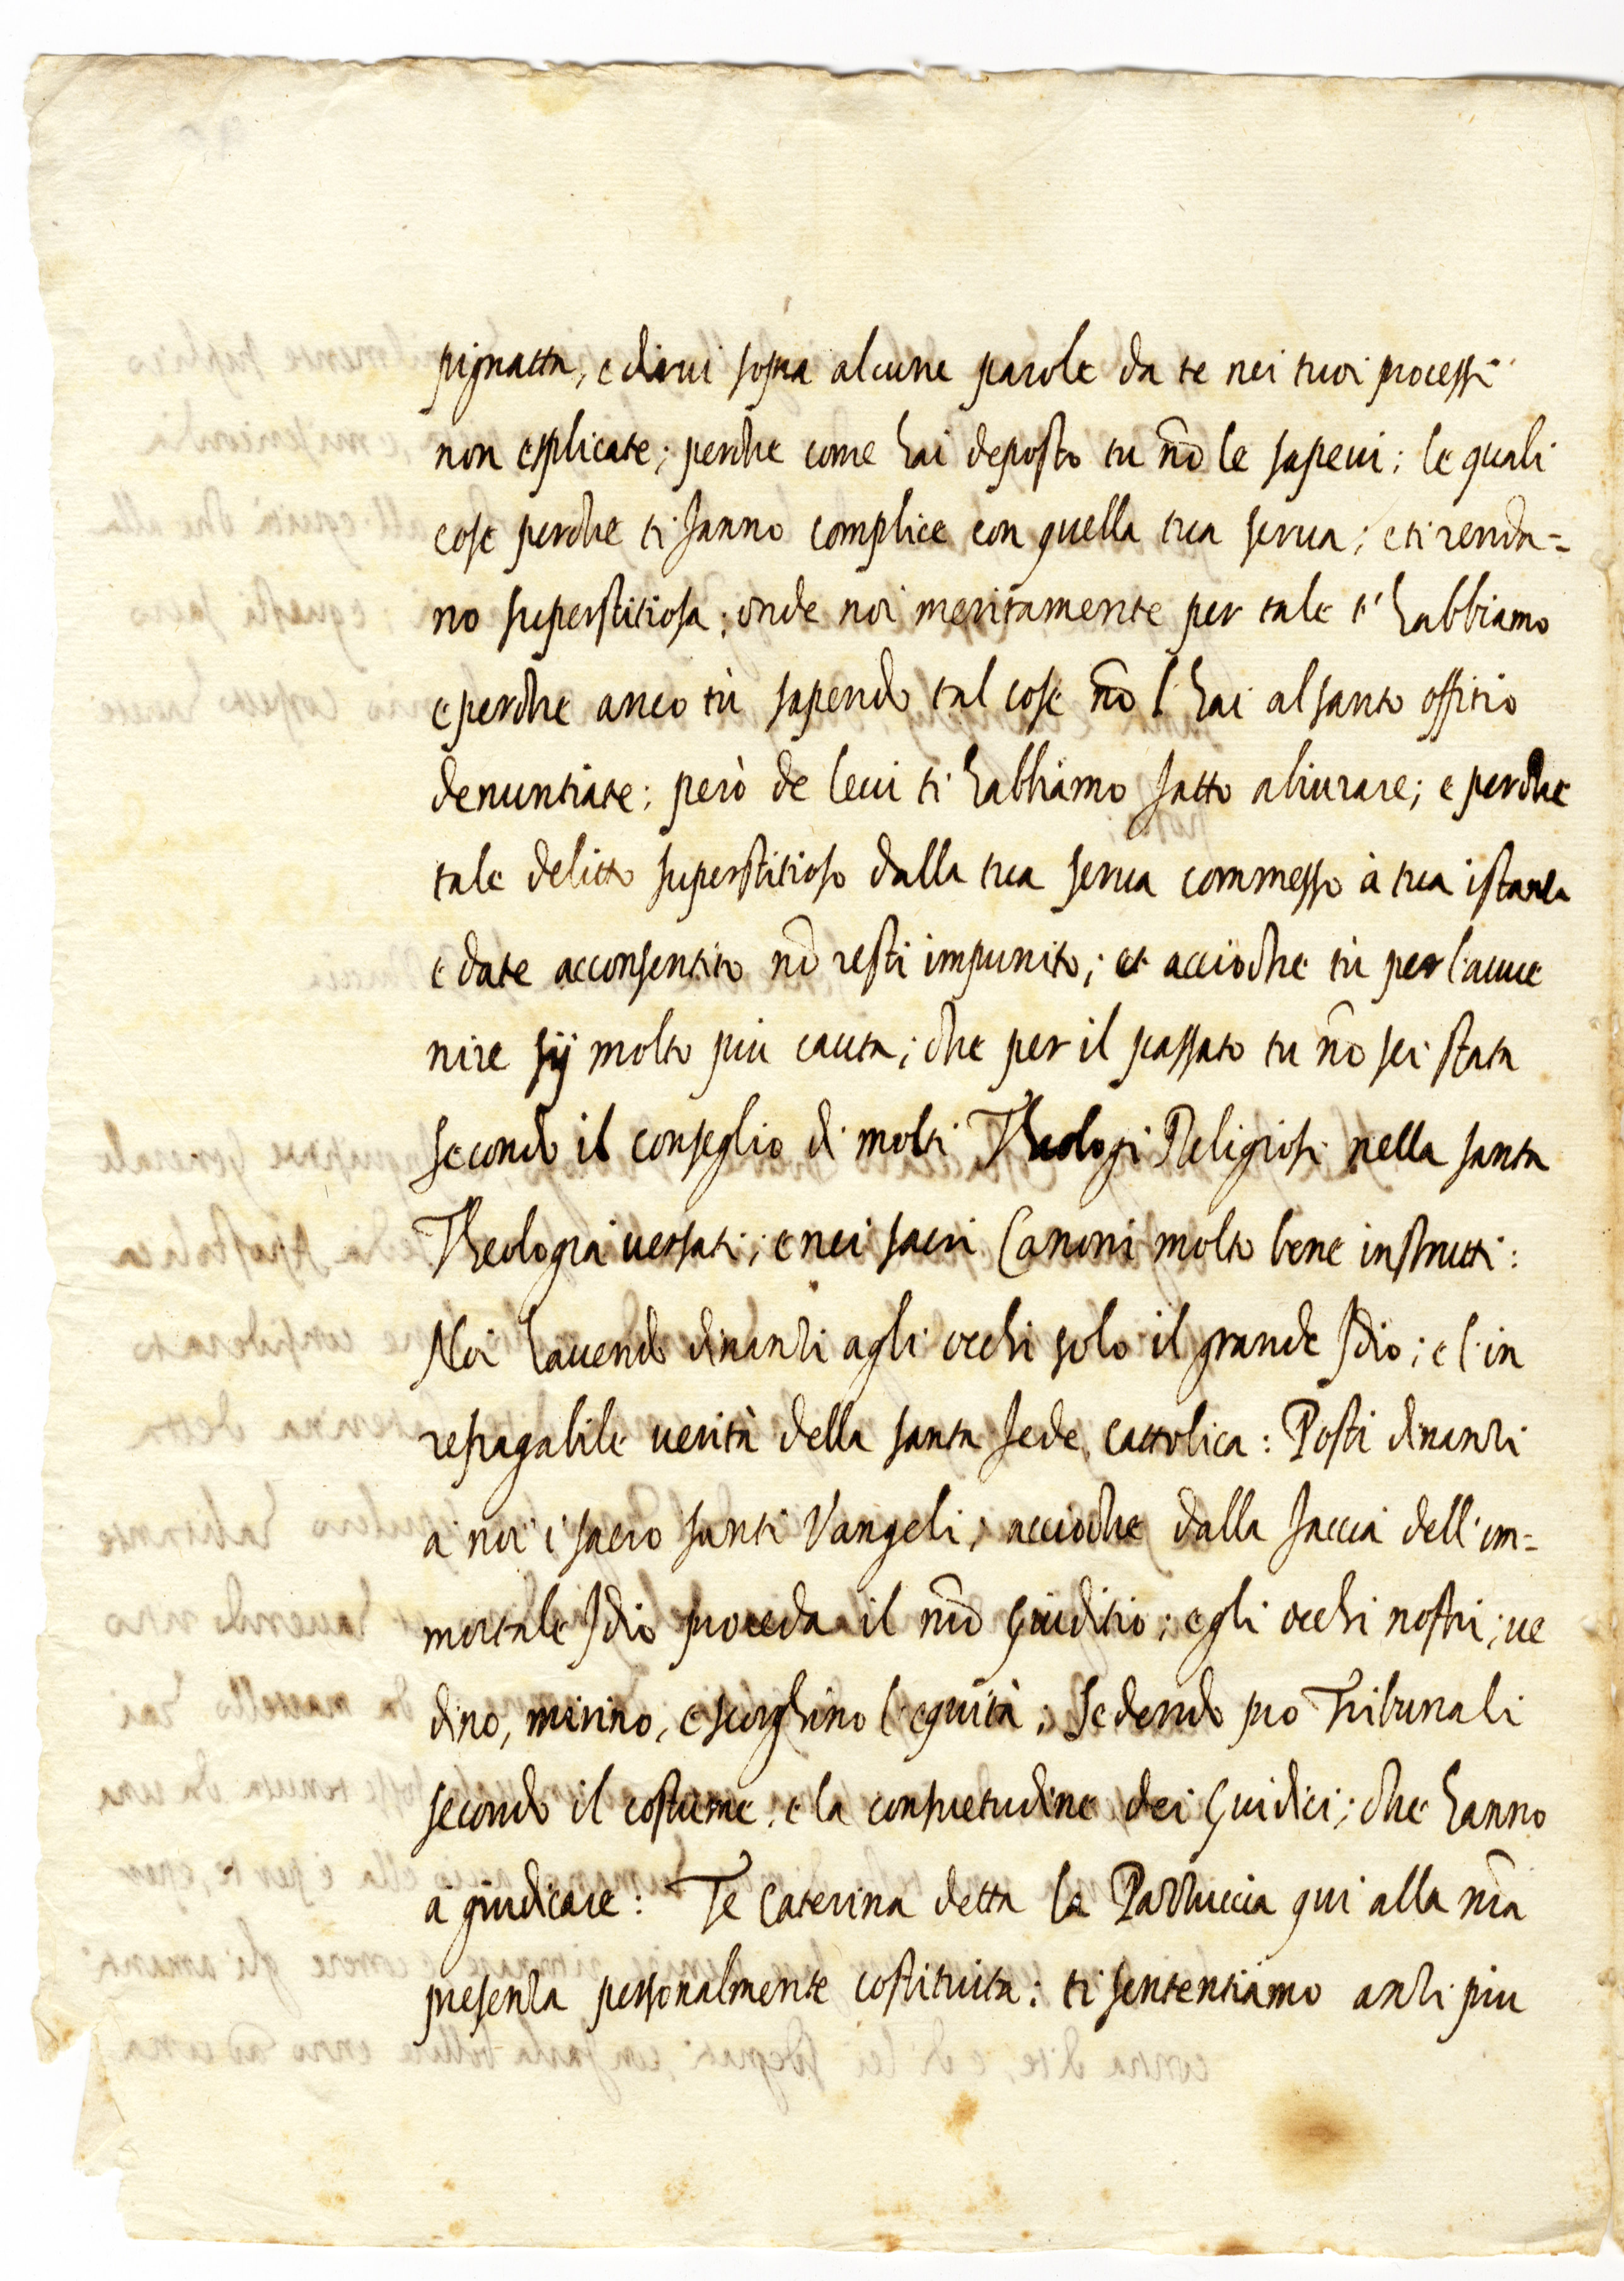 pignatta, e dirui sopra alcune parole da te nei tuoi processi
non esplicate; perche come hai deposto tu nō le sapeui; le quali
cose perche ti fanno complice con quella tua serua; e ti renda=
no superstitiosa; onde noi meritamente per tale t'habbiamo
e perche anco tù sapendo tal cose nō l'hai al santo offitio
denuntiate; però de leui ti habbiamo fatto abiurare; e perche
tale delitto superstitioso dalla tua serua commesso à tua istanza
e da te acconsentito nō resti impunito; et accioche tù per l'auue
nire sij molto piu cauta; che per il passato tu nō sei stata
secondo il conseglio di molti Theologi Religiosi nella santa
Theologia uersati; e nei sacri Canoni molto bene instrutti:
Noi hauendo dinanzi agli occhi solo il grande Idio; e l'in
refragabile uerità della santa fede cattolica: Posti dinanzi
a noi i sacro santi Vangeli, accioche dalla faccia dell'im=
mortale Idio proceda il nrō Giuditio; e gli occhi nostri; ue
dino, mirino, e scorghino l'equità; Sedendo pro Tribunali
secondo il costume, e la consuetudine dei Giudici; che hanno
à giudicare: Te Caterina detta la qui alla nrā
presenza personalmente costituita: ti sententiamo anzi piu